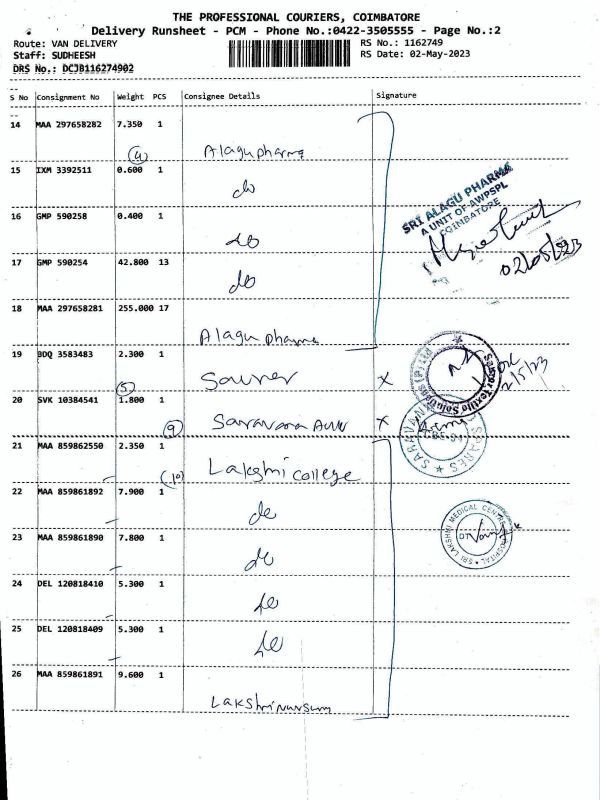 THE PROFESSIONAL COURIERS, COIMBATORE
Delivery Runsheet - PCM - Phone No.:0422-3505555 - Page No.:2
Route: VAN DELIVERY RS No.: 1162749
Staff: SUDHEESH RS Date: 02-May-2023
DRS No.: DCJB116274902
S No Consignment No Weight PCS Consignee Details Signature
14 MAA 297658282 7.350 1
(4) Alagu pharma
15 IXM 3392511 0.600 1
do
16 GMP 590258 0.400 1
do
SRI ALAGU PHARMA
A UNIT OF AWPSPL
COIMBATORE
02/05/23
17 GMP 590254 42.800 13
do
18 MAA 297658281 255.000 17
Alagu pharma
19 BDQ 3583483 2.300 1
(5) x
Textile Solutions (P) Ltd
2/5/23
20 SVK 10384541 1.800 1
(9) Saravana x
SARAVANA SPARES
21 MAA 859862550 2.350 1
(10) Lakshmi college
22 MAA 859861892 7.900 1
do
SRI LAKSHMI MEDICAL CENTRE HOSPITAL
23 MAA 859861890 7.800 1
do
24 DEL 120818410 5.300 1
do
25 DEL 120818409 5.300 1
do
26 MAA 859861891 9.600 1
Lakshmi